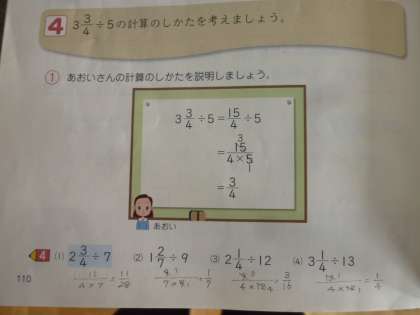 4 3 3/4 ÷ 5 の計算のしかたを考えましょう。
① あおいさんの計算のしかたを説明しましょう。
3 3/4 ÷ 5 = 15/4 ÷ 5
3
= 15/4×5
1
= 3/4
あおい
4 (1) 2 3/4 ÷ 7 (2) 1 2/7 ÷ 9 (3) 2 1/4 ÷ 12 (4) 3 1/4 ÷ 13
11/4×7 = 11/28
110